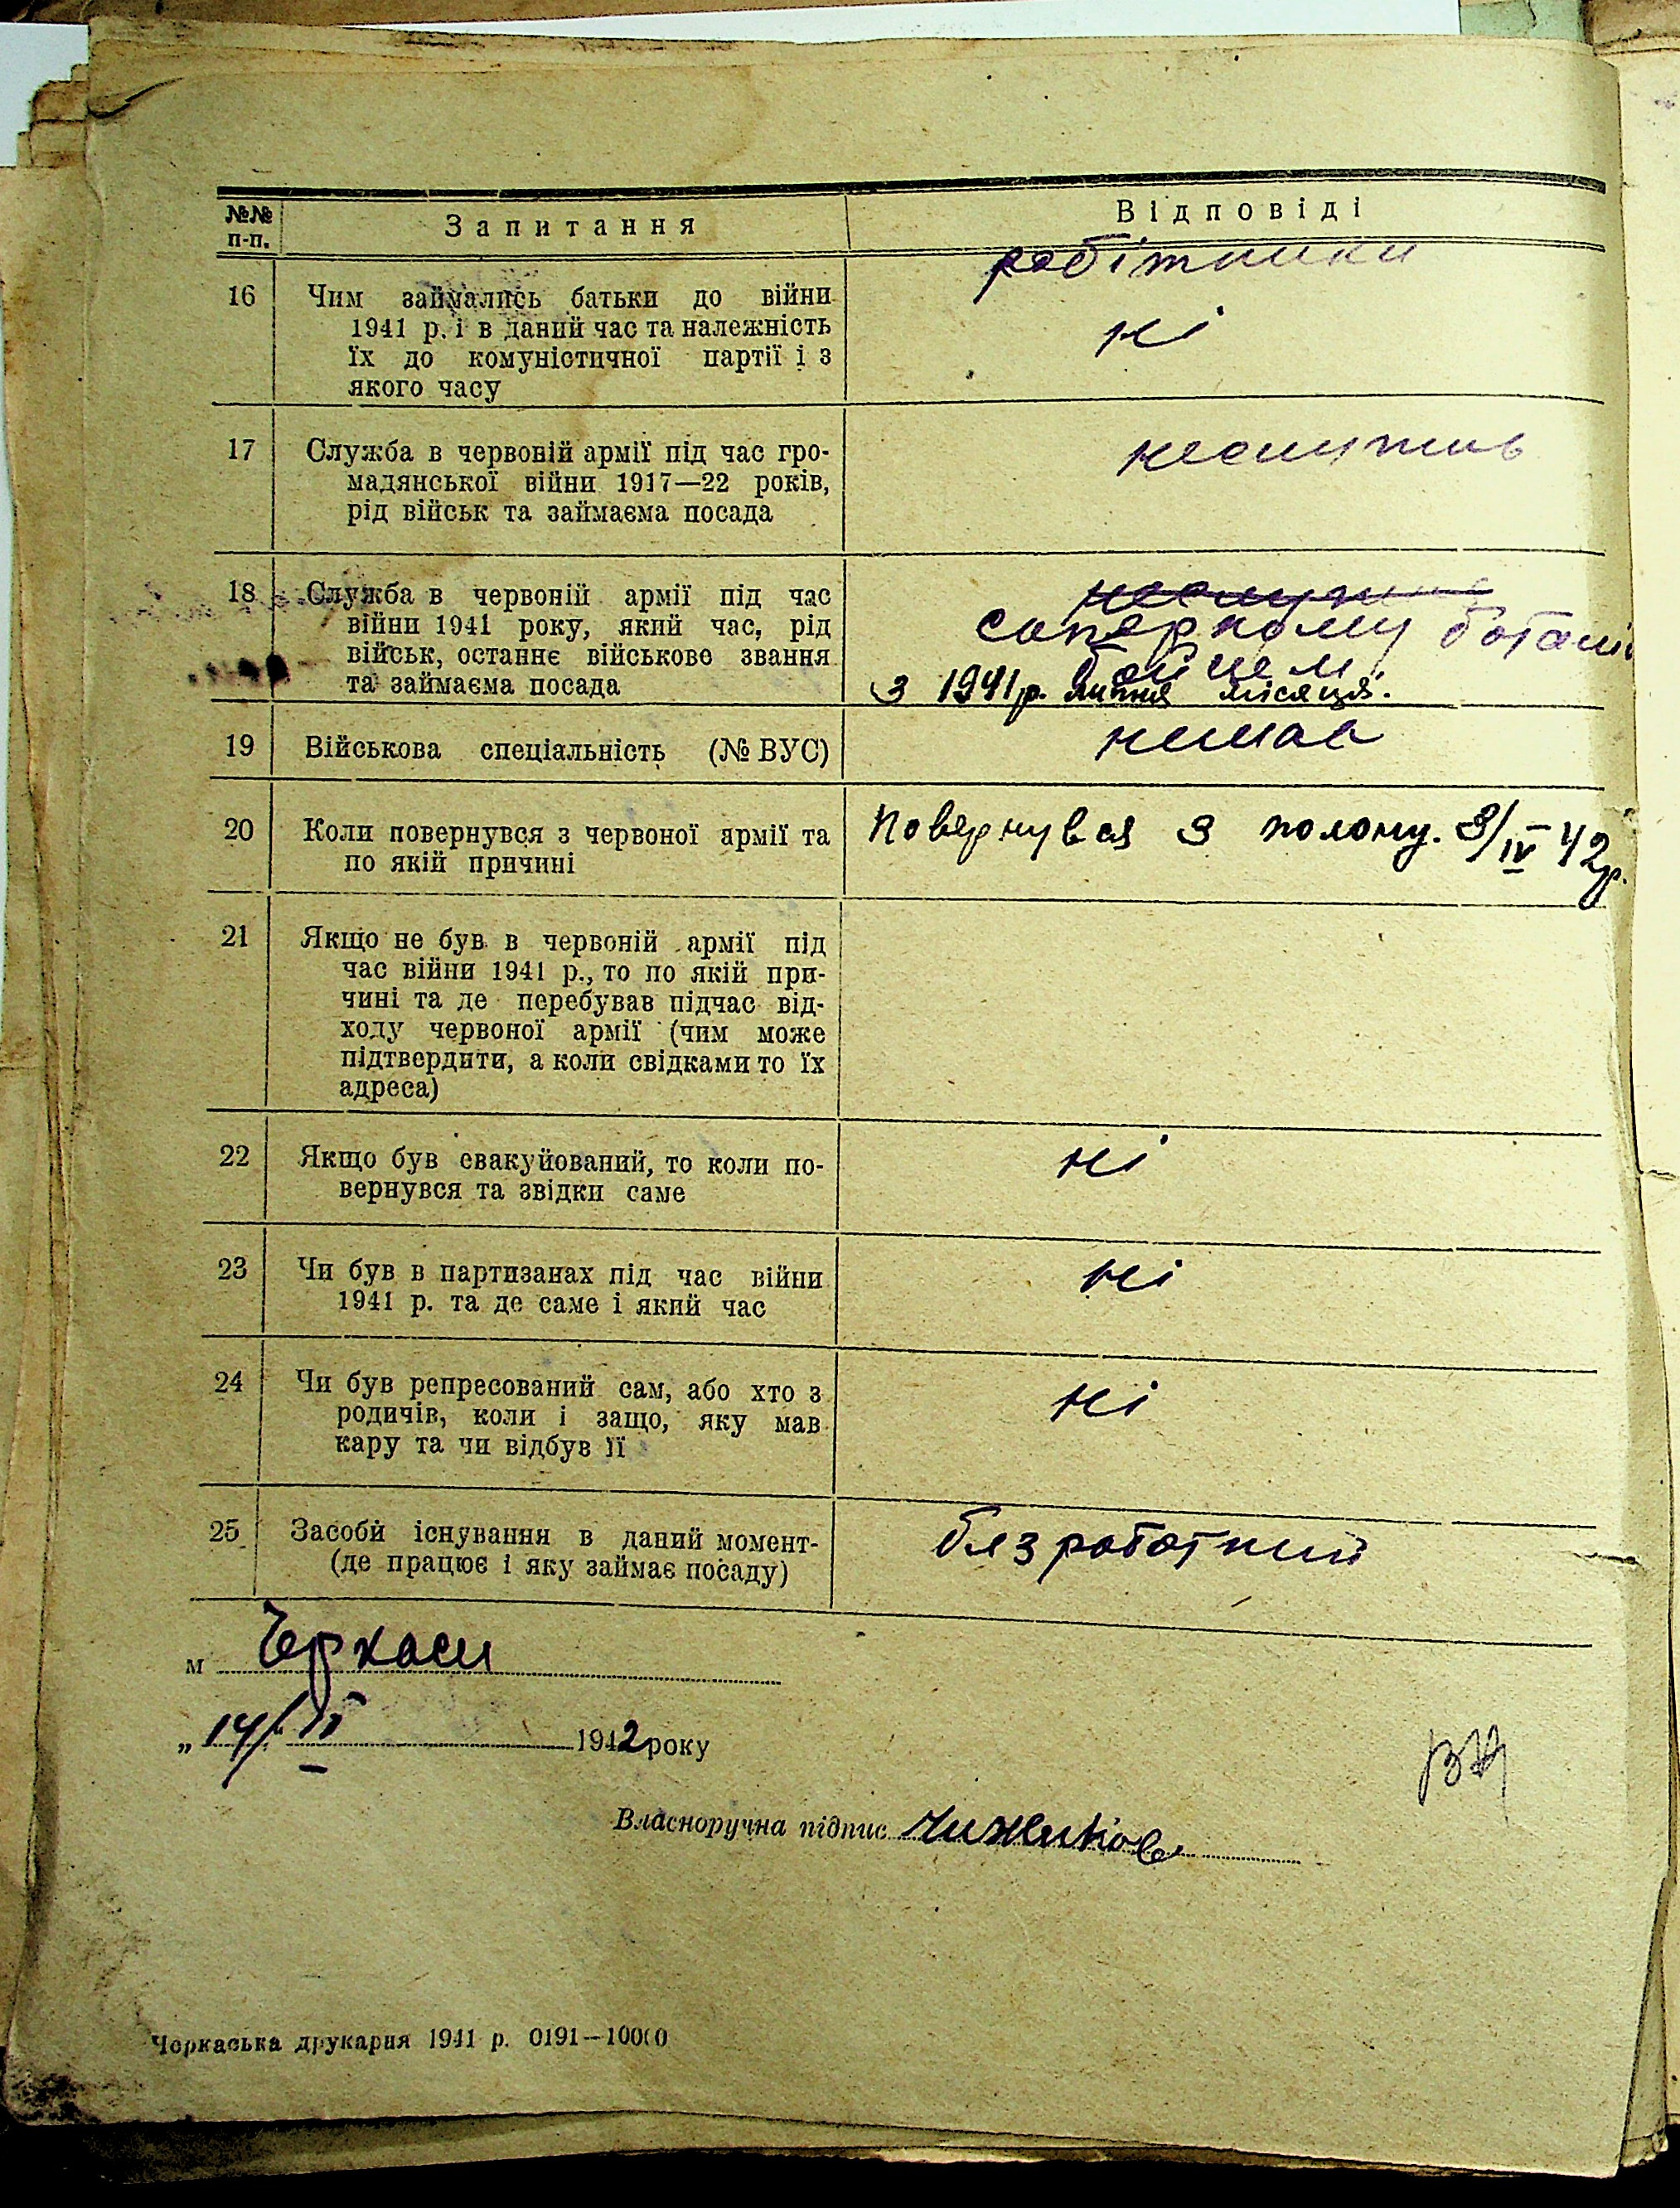 №№ п-п. Запитання Відповіді
робітники
16 Чим займались батьки до війни
1941 р. і в даний час та належність ні
їх до комуністичної партії і з
якого часу
17 Служба в червоній армії під час гро- неслужив
мадянської війни 1917—22 років,
рід військ та займаєма посада
18 Служба в червоній армії під час неслужив
війни 1941 року, який час, рід саперному
військ, останнє військове звання бойцем
та займаєма посада з 1941 р. липня місяця.
19 Військова спеціальність (№ ВУС) немав
20 Коли повернувся з червоної армії та Повернувся з полону. 3/IV 42р.
по якій причині
21 Якщо не був в червоній армії під
час війни 1941 р., то по якій при-
чині та де перебував підчас від-
ходу червоної армії (чим може
підтвердити, а коли свідками то їх
адреса)
22 Якщо був евакуйований, то коли по- ні
вернувся та звідки саме
23 Чи був в партизанах під час війни ні
1941 р. та де саме і який час
24 Чи був репресований сам, або хто з ні
родичів, коли і защо, яку мав
кару та чи відбув її
25 Засоби існування в даний момент- безработний
(де працює і яку займає посаду)
м Черкаси
„14/ 1942 року
Власноручна підпис Чижиков
Черкаська друкарня 1941 р. 0191—10000